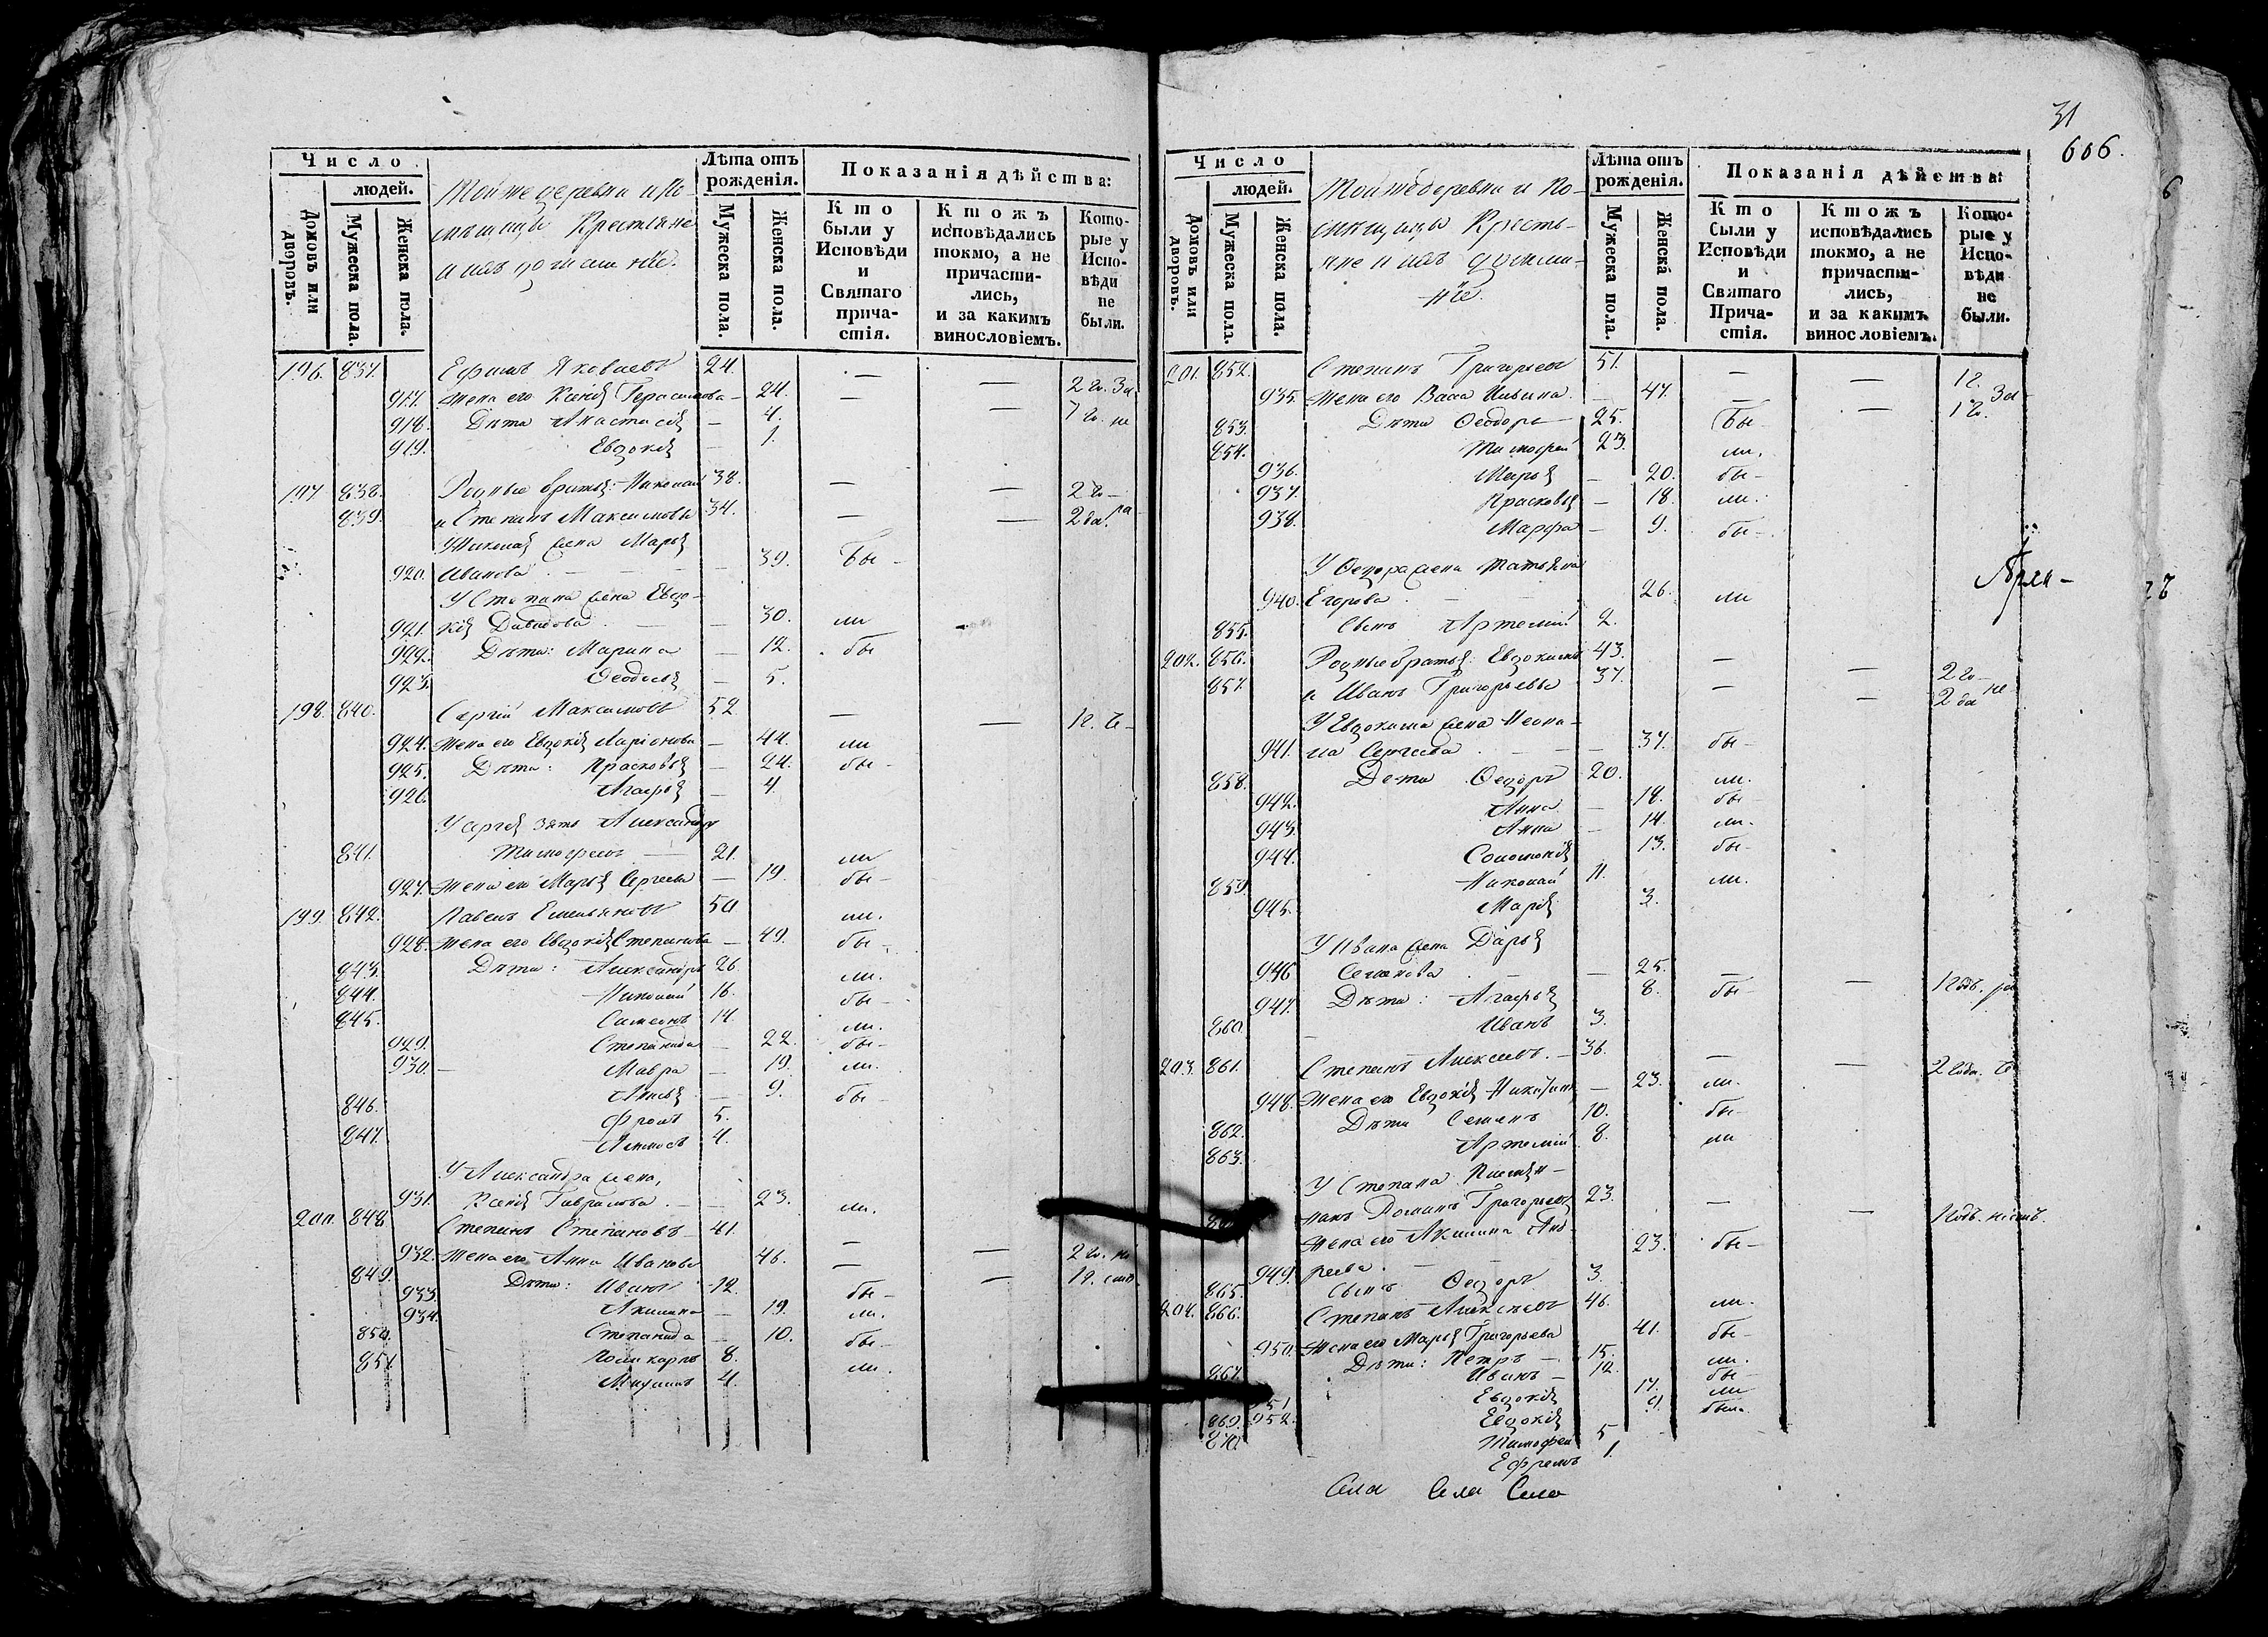 Число
людей.
Домовъ или дворовъ.
Мужеска пола.
Женска пола.
Тойже деревни и По-
мѣщицы Крестьяне
и ихъ домашніе.
Лѣта отъ рожденія.
Мужеска пола.
Женска пола.
Показанія дѣйства:
Кто были у Исповѣди и Святаго причастія.
Ктожъ исповѣдались токмо, а не причастились, и за какимъ винословіемъ.
Которые у Исповѣди не были.
196. 837. Ефимъ Яковлевъ 24. — — 2 го.
917. Жена его Ксенія Герасимова — 24. — —
918. Дѣти Анастасія — 4.
919. Евдокія — 1.
197 838. Родные братья: Николай 38. — — 2 го
839. и Степанъ Максимовы 34. — — 2 да
У Николая жена Марья
920. Иванова — 39. бы —
У Степана жена Евдо-
921. кія Давидова — 30. ли
922. Дѣти: Марина — 12. бы
923. Ѳеодосья — 5.
198. 840. Сергій Максимовъ 52 — — 1 г.
924. Жена его Евдокія Ларіонова — 44. ли
925. Дѣти: Прасковья — 24. бы —
926. Агафья — 4
У Сергія зять Александръ
841. Тимофеевъ — 21. ли
927. Жена его Марья Сергеева — 19. бы —
199. 842. Павелъ Емельяновъ 50 ли.
928. Жена его Евдокія Степанова — 49. бы —
843. Дѣти: Александръ 26. ли.
844. Николай 16. бы —
845. Симеонъ 14. ли.
929. Степанида — 22. бы —
930. Мавра — 19. ли.
Анна — 9. бы —
846. Фролъ 5.
847. 4.
У Александра жена,
931. Ксенія Гаврилова — 23. ли.
200. 848 Степанъ Степановъ 41. — — 2 го.
932. Жена его Анна Иванова 46. — — 1 г.
849. Дѣти: Иванъ 12. бы —
933. Акилина — 19. ли.
934. Степанида — 10. бы —
850. Поликарпъ 8. ли.
851. 4.
31
606.
Число
людей.
Домовъ или дворовъ.
Мужеска пола.
Женска пола.
Тойже деревни и По-
мѣщицы Кресть-
яне и ихъ домаш-
ніе.
Лѣта отъ рожденія.
Мужеска пола.
Женска пола.
Показанія дѣйства:
Кто были у Исповѣди и Святаго Причастія.
Ктожъ исповѣдались токмо, а не причастились, и за какимъ винословіемъ.
Которые у Исповѣди не были.
201. 852. Степанъ Григорьевъ 51. — — 1 г.
935. Жена его Васса Ильина — 47. — — 1 г.
853. Дѣти Ѳеодоръ — 25. бы —
854. Тимофей 23. ли.
936. Марья — 20. бы —
937. Прасковья — 18. ли.
938. Марфа — 9. бы —
У Ѳедора жена Татьяна
940. Егорова — 26. ли
855. Сынъ Артемій 2.
202. 856. Родные братья: Евдокимъ 43. — — 2 го —
857. и Иванъ Григорьевы 37. — — 2 да
У Евдокима жена Неони-
941. ла Сергеева — 37. бы —
858. Дети Ѳедоръ 20. ли.
942. Анна — 18. бы —
943. Анна — 14. ли.
944. Соломонія 13. бы —
859. Николай 11. ли.
945. Марія 3.
У Ивана жена Дарья
946 Семенова — 25. — — 1 годъ.
947. Дѣти: Агафья 8. бы —
860. Иванъ 3.
203. 861. Степанъ Алексеевъ. — 36. — — 2 года.
948. Жена его Евдокія Никитина — 23. ли.
862. Дѣти Семенъ 10. бы —
863. Артемій 8. ли
У Степана Племян-
никъ Романъ Григорьевъ 23. — — 1 годъ.
Жена его Акилина Анд- 23. бы —
949. реева. —
865. Сынъ Ѳедоръ 3.
204. 866. Степанъ Алексеевъ 46. ли.
950. Жена его Марья Григорьева 41. бы —
867. Дѣти: Петръ — 15. ли.
Иванъ — 12. бы —
951 Евдокія 17. ли
869. 952. Евдокія 9. была
870. Тимофей 5
Ефремъ 1.
Села Села Село